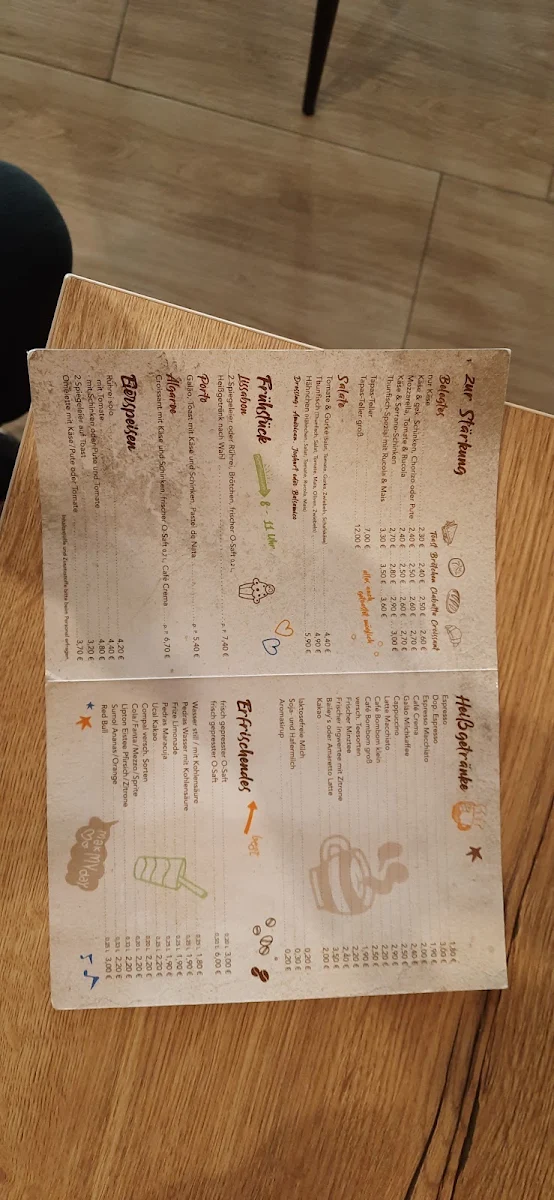 Zur Stärkung
Belegtes
Toast Brötchen Ciabatta Croissant
nur Käse 2,30 € 2,40 € 2,50 € 2,60 €
Käse & gek. Schinken, Chorizo oder Pute 2,40 € 2,50 € 2,60 € 2,70 €
Mozzarella, Tomate & Rucola 2,40 € 2,50 € 2,60 € 2,70 €
Käse & Serrano-Schinken 2,70 € 2,80 € 2,90 € 3,00 €
Thunfisch Spezial mit Rucola & Mais 3,30 € 3,50 € 3,60 €
Tapas-Teller 7,00 €
Tapas-Teller groß 12,00 €
alles auch
möglich
Salate
Tomate & Gurke (Salat, Tomate, Gurke, Zwiebeln, Schafskäse) 4,40 €
Thunfisch (Thunfisch, Salat, Tomate, Mais, Oliven, Zwiebeln) 4,90 €
Hähnchen (Hähnchen, Salat, Tomate, Rucola, Mais) 5,90 €
Dressing: American, Joghurt oder Balsamico
Frühstück 8 - 11 Uhr
Lissabon
2 Spiegeleier oder Rührei, Brötchen, frischer O-Saft 0,2 L,
Heißgetränk nach Wahl p. P. 7,40 €
Porto
Galão, Toast mit Käse und Schinken, Pastel de Nata p. P. 5,40 €
Algarve
Croissant mit Käse und Schinken, frischer O-Saft 0,2 L, Café Crema p. P. 6,70 €
Eierspeisen
Rührei solo 4,20 €
mit Tomate 4,40 €
mit Schinken oder Pute und Tomate 4,80 €
2 Spiegeleier auf Toast 3,20 €
Omelette mit Käse/Pute oder Tomate 3,70 €
Inhaltsstoffe und Zusatzstoffe bitte beim Personal erfragen.
Heißgetränke
Espresso 1,80 €
Dop. Espresso 3,00 €
Espresso Macchiato 1,90 €
Café Crema 2,00 €
Galão Milchkaffee 2,40 €
Cappuccino 2,50 €
Latte Macchiato 2,90 €
Café Bombom klein 2,20 €
Café Bombom groß 2,50 €
versch. Teesorten 1,90 €
Frischer Minztee 2,20 €
Frischer Ingwertee mit Zitrone 2,40 €
Bailey's oder Amaretto Latte 3,50 €
Kakao 2,00 €
laktosefreie Milch 0,20 €
Soja- und Hafermilch 0,30 €
Aromasirup 0,20 €
Erfrischendes
frisch gepresster O-Saft 0,20 L 3,00 €
frisch gepresster O-Saft 0,50 L 6,00 €
Wasser still / mit Kohlensäure 0,25 L 1,80 €
Pedras Wasser mit Kohlensäure 0,25 L 1,90 €
Frize Limonade 0,25 L 1,90 €
Pedras Maracuja 0,25 L 1,90 €
Ucal Kakao 0,25 L 2,20 €
Compal versch. Sorten 0,20 L 2,20 €
Cola/Fanta/Mezzo/Sprite 0,20 L 2,20 €
Lipton Eistee Pfirsich/Zitrone 0,33 L 2,20 €
Sumol Ananas/Orange 0,33 L 2,20 €
Red Bull 0,25 L 3,00 €
mak My day